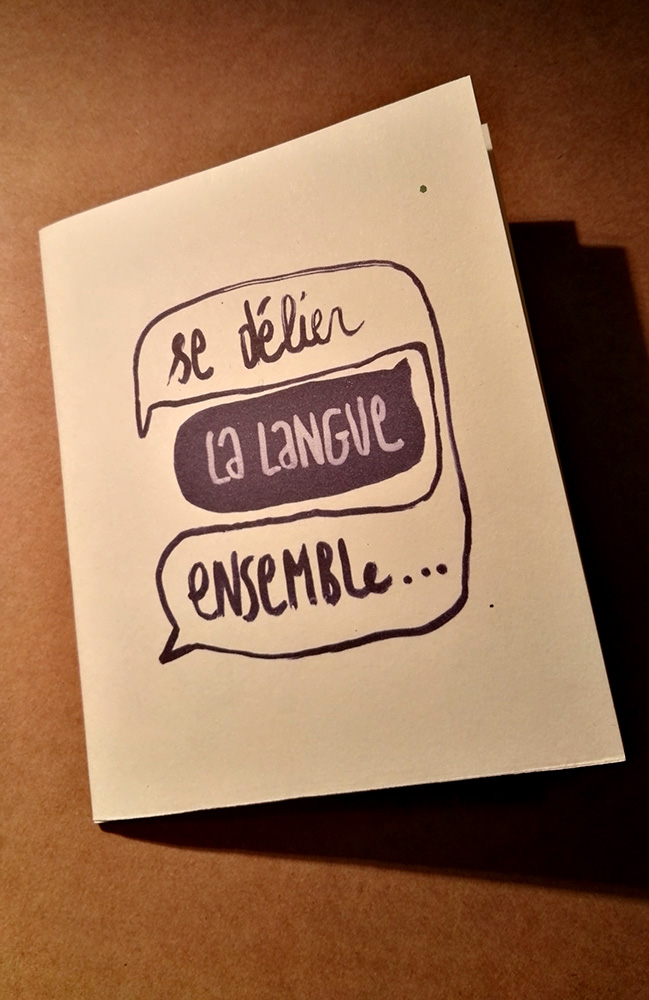 se délier
La LaNGUe
eNSeMBLe...